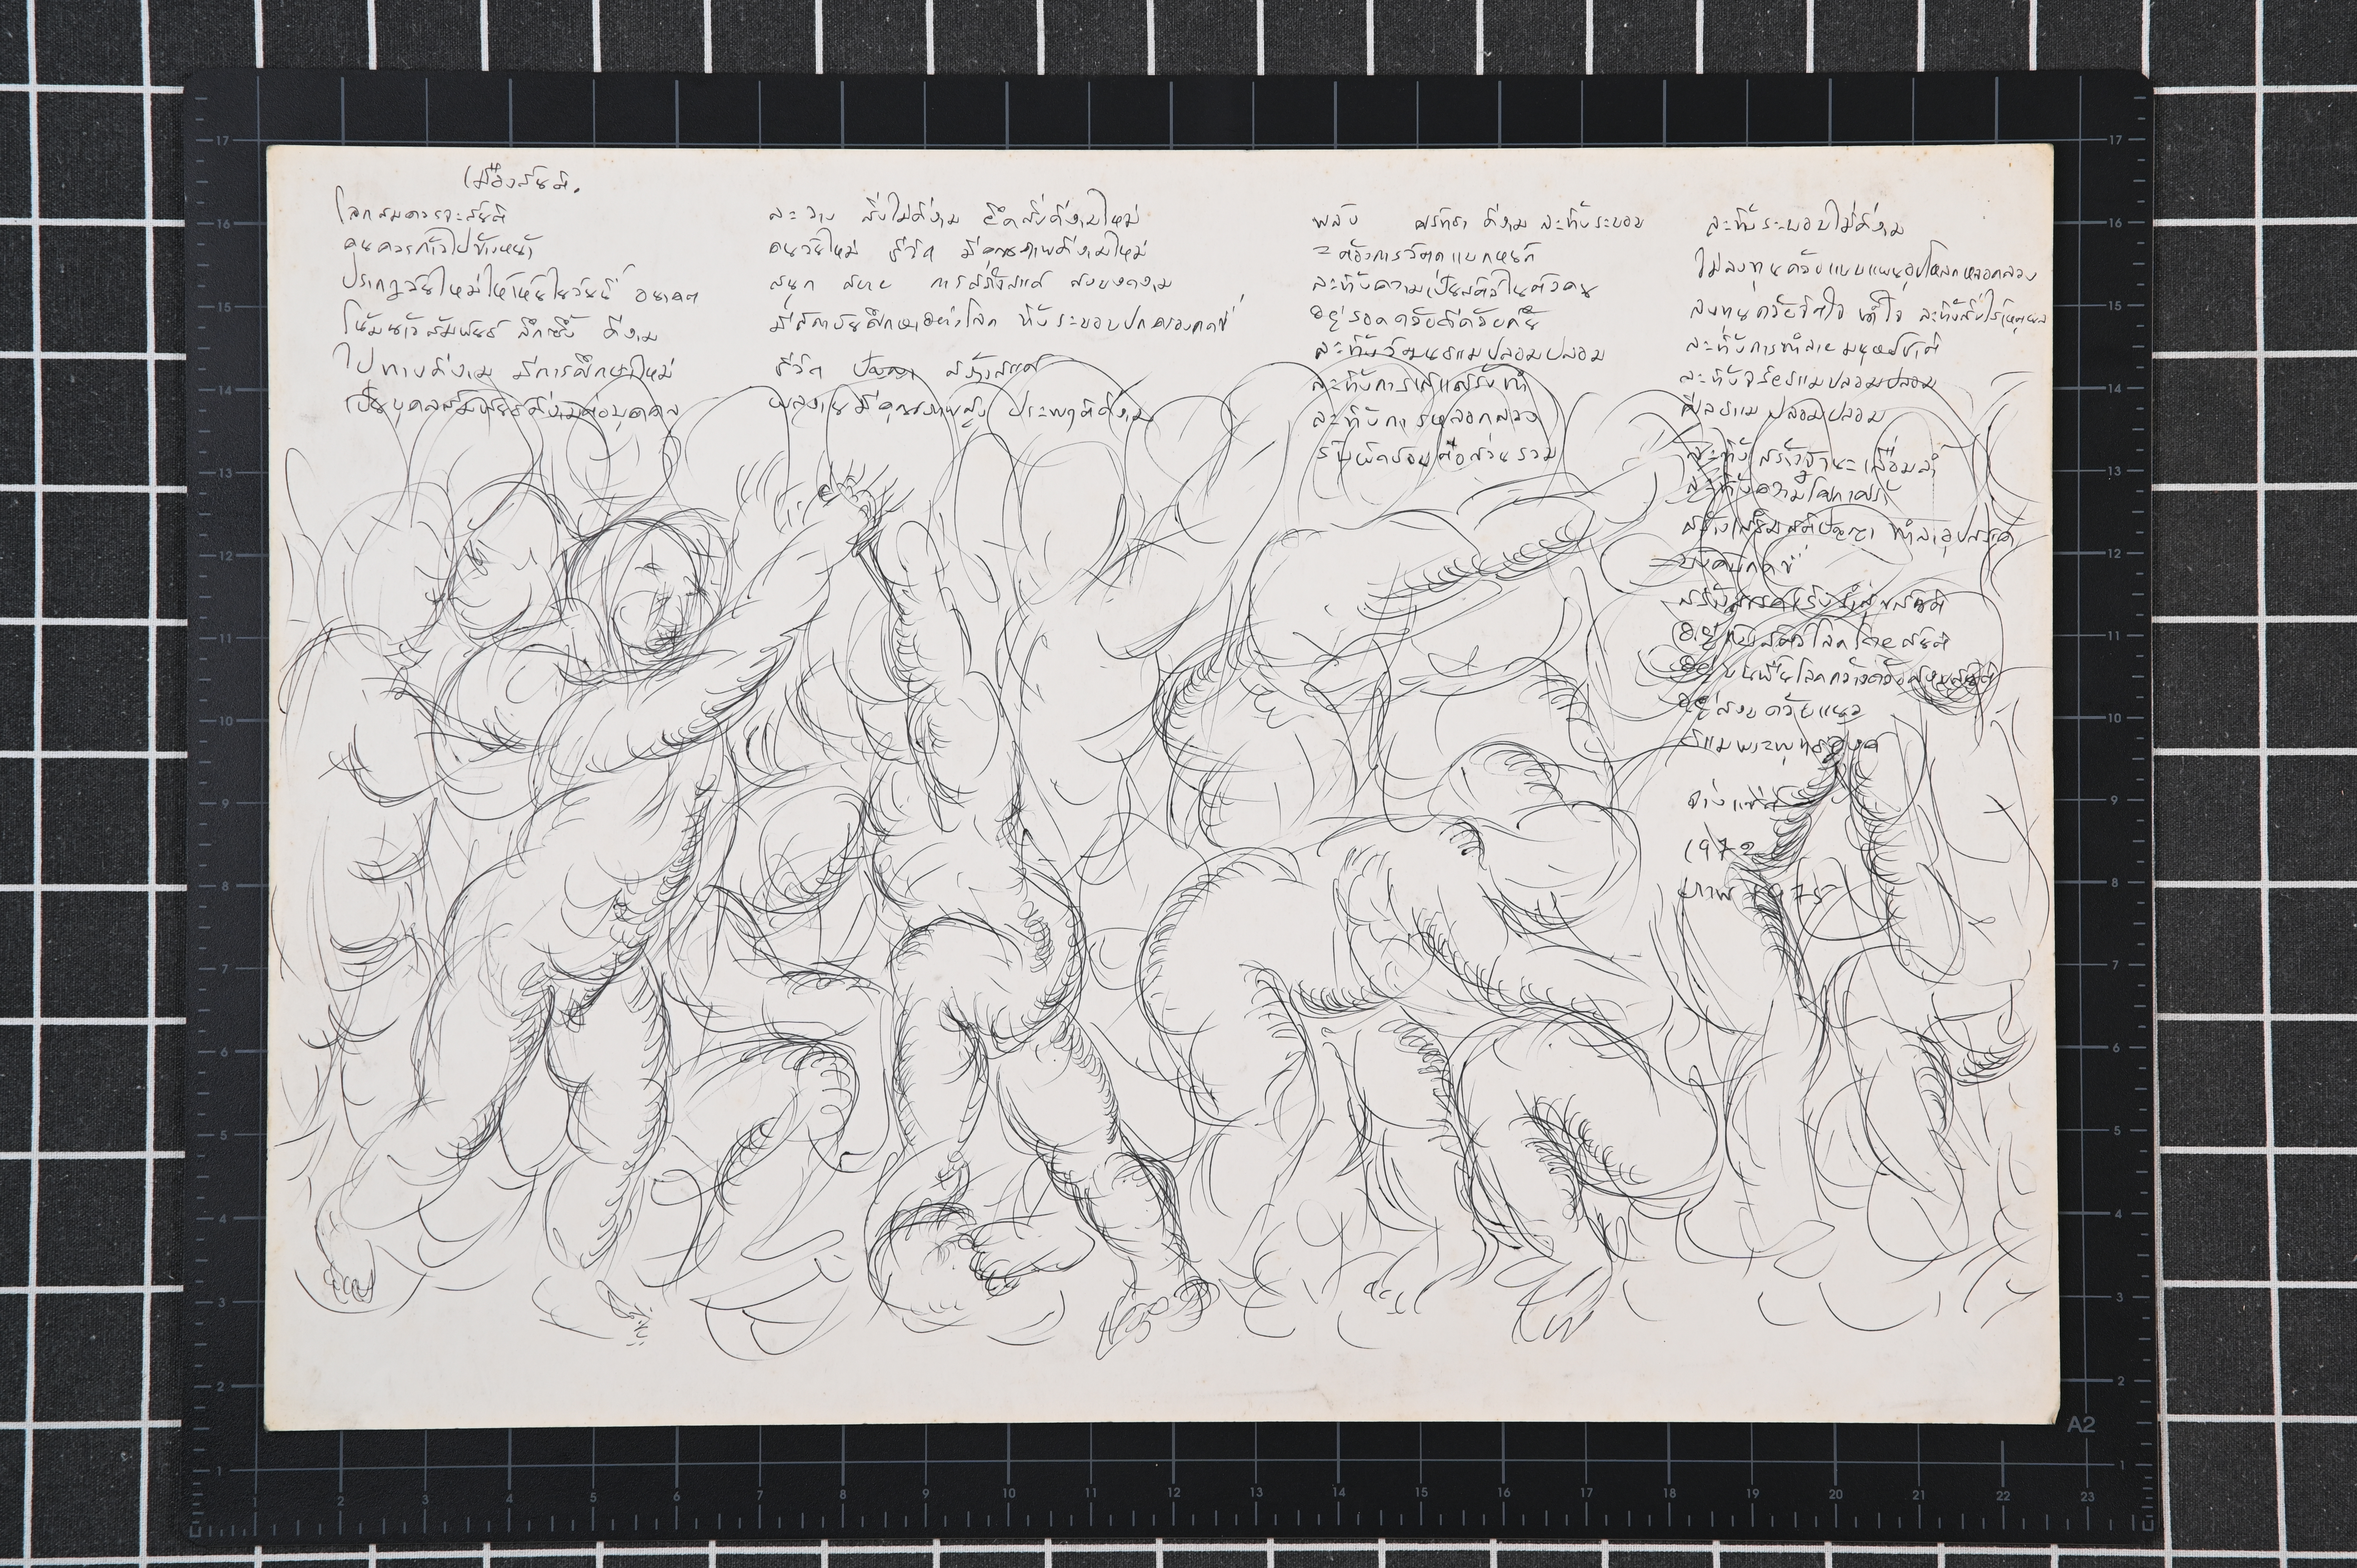 เมืองสันติ.
โลกสมควรจะสันติ
คนควรก้าวไปข้างหน้า
ปรากฏวันใหม่ให้เห็นในวันนี้ อนาคต
โน้มนำสัมพันธ์ ลึกซึ้ง ดีงาม
ไปทางดีงาม มีการศึกษาใหม่
เป็นบุคคลสัมพันธ์ดีงามต่อบุคคล
ละ วาง สิ่งไม่ดีงาม ยึดสิ่งดีงามใหม่
คนวัยใหม่ ชีวิต มีคุณภาพดีงามใหม่
สนุก สบาย การสร้างสรรค์ สงบงดงาม
มีสถาบันศึกษาอย่างโลก ทิ้งระบอบปกครองกดขี่
ชีวิต ปัญญา สร้างสรรค์
ผลงานมีคุณภาพสูง ประพฤติดีงาม
พลัง ศรัทธา ดีงาม ละทิ้งระบอบ
ละทิ้งความเป็นสัตว์ในตัวคน
อยู่รอดด้วยดีด้วยกัน
ละทิ้งวัฒนธรรมปลอมปลอม
ละทิ้งการเสแสร้งทำ
ละทิ้งการหลอกลวง
รับผิดชอบต่อส่วนรวม
ละทิ้งระบอบไม่ดีงาม
ไม่ลงทุนด้วยแบบแผนอุปโลกหลอกลวง
ลงทุนด้วยจิตใจ เข้าใจ ละทิ้งสิ่งไร้เหตุผล
ละทิ้งการทำลายมนุษยชาติ
ละทิ้งจริยธรรมปลอมปลอม
ศีลธรรมปลอมปลอม
ละทิ้งสร้างฐานะเหลื่อมล้ำ
ละทิ้งความโสมาศร้า
สร้างเสริมสติปัญญา ทำลายอุปสรรค
บังคับกดขี่
อยู่ทั่วโลกโดยสันติ
อยู่บนพื้นโลกกว้างด้วยสันติ
อยู่สงบด้วยแนว
ธรรมพระพุทธองค์
จ่าง แซ่ตั้ง
1972
ภาพ 1975
17
16
15
14
13
12
11
10
9
8
7
6
5
4
3
2
1
17
16
15
14
13
12
11
10
9
8
7
6
5
4
3
2
A2
1
1 2 3 4 5 6 7 8 9 10 11 12 13 14 15 16 17 18 19 20 21 22 23